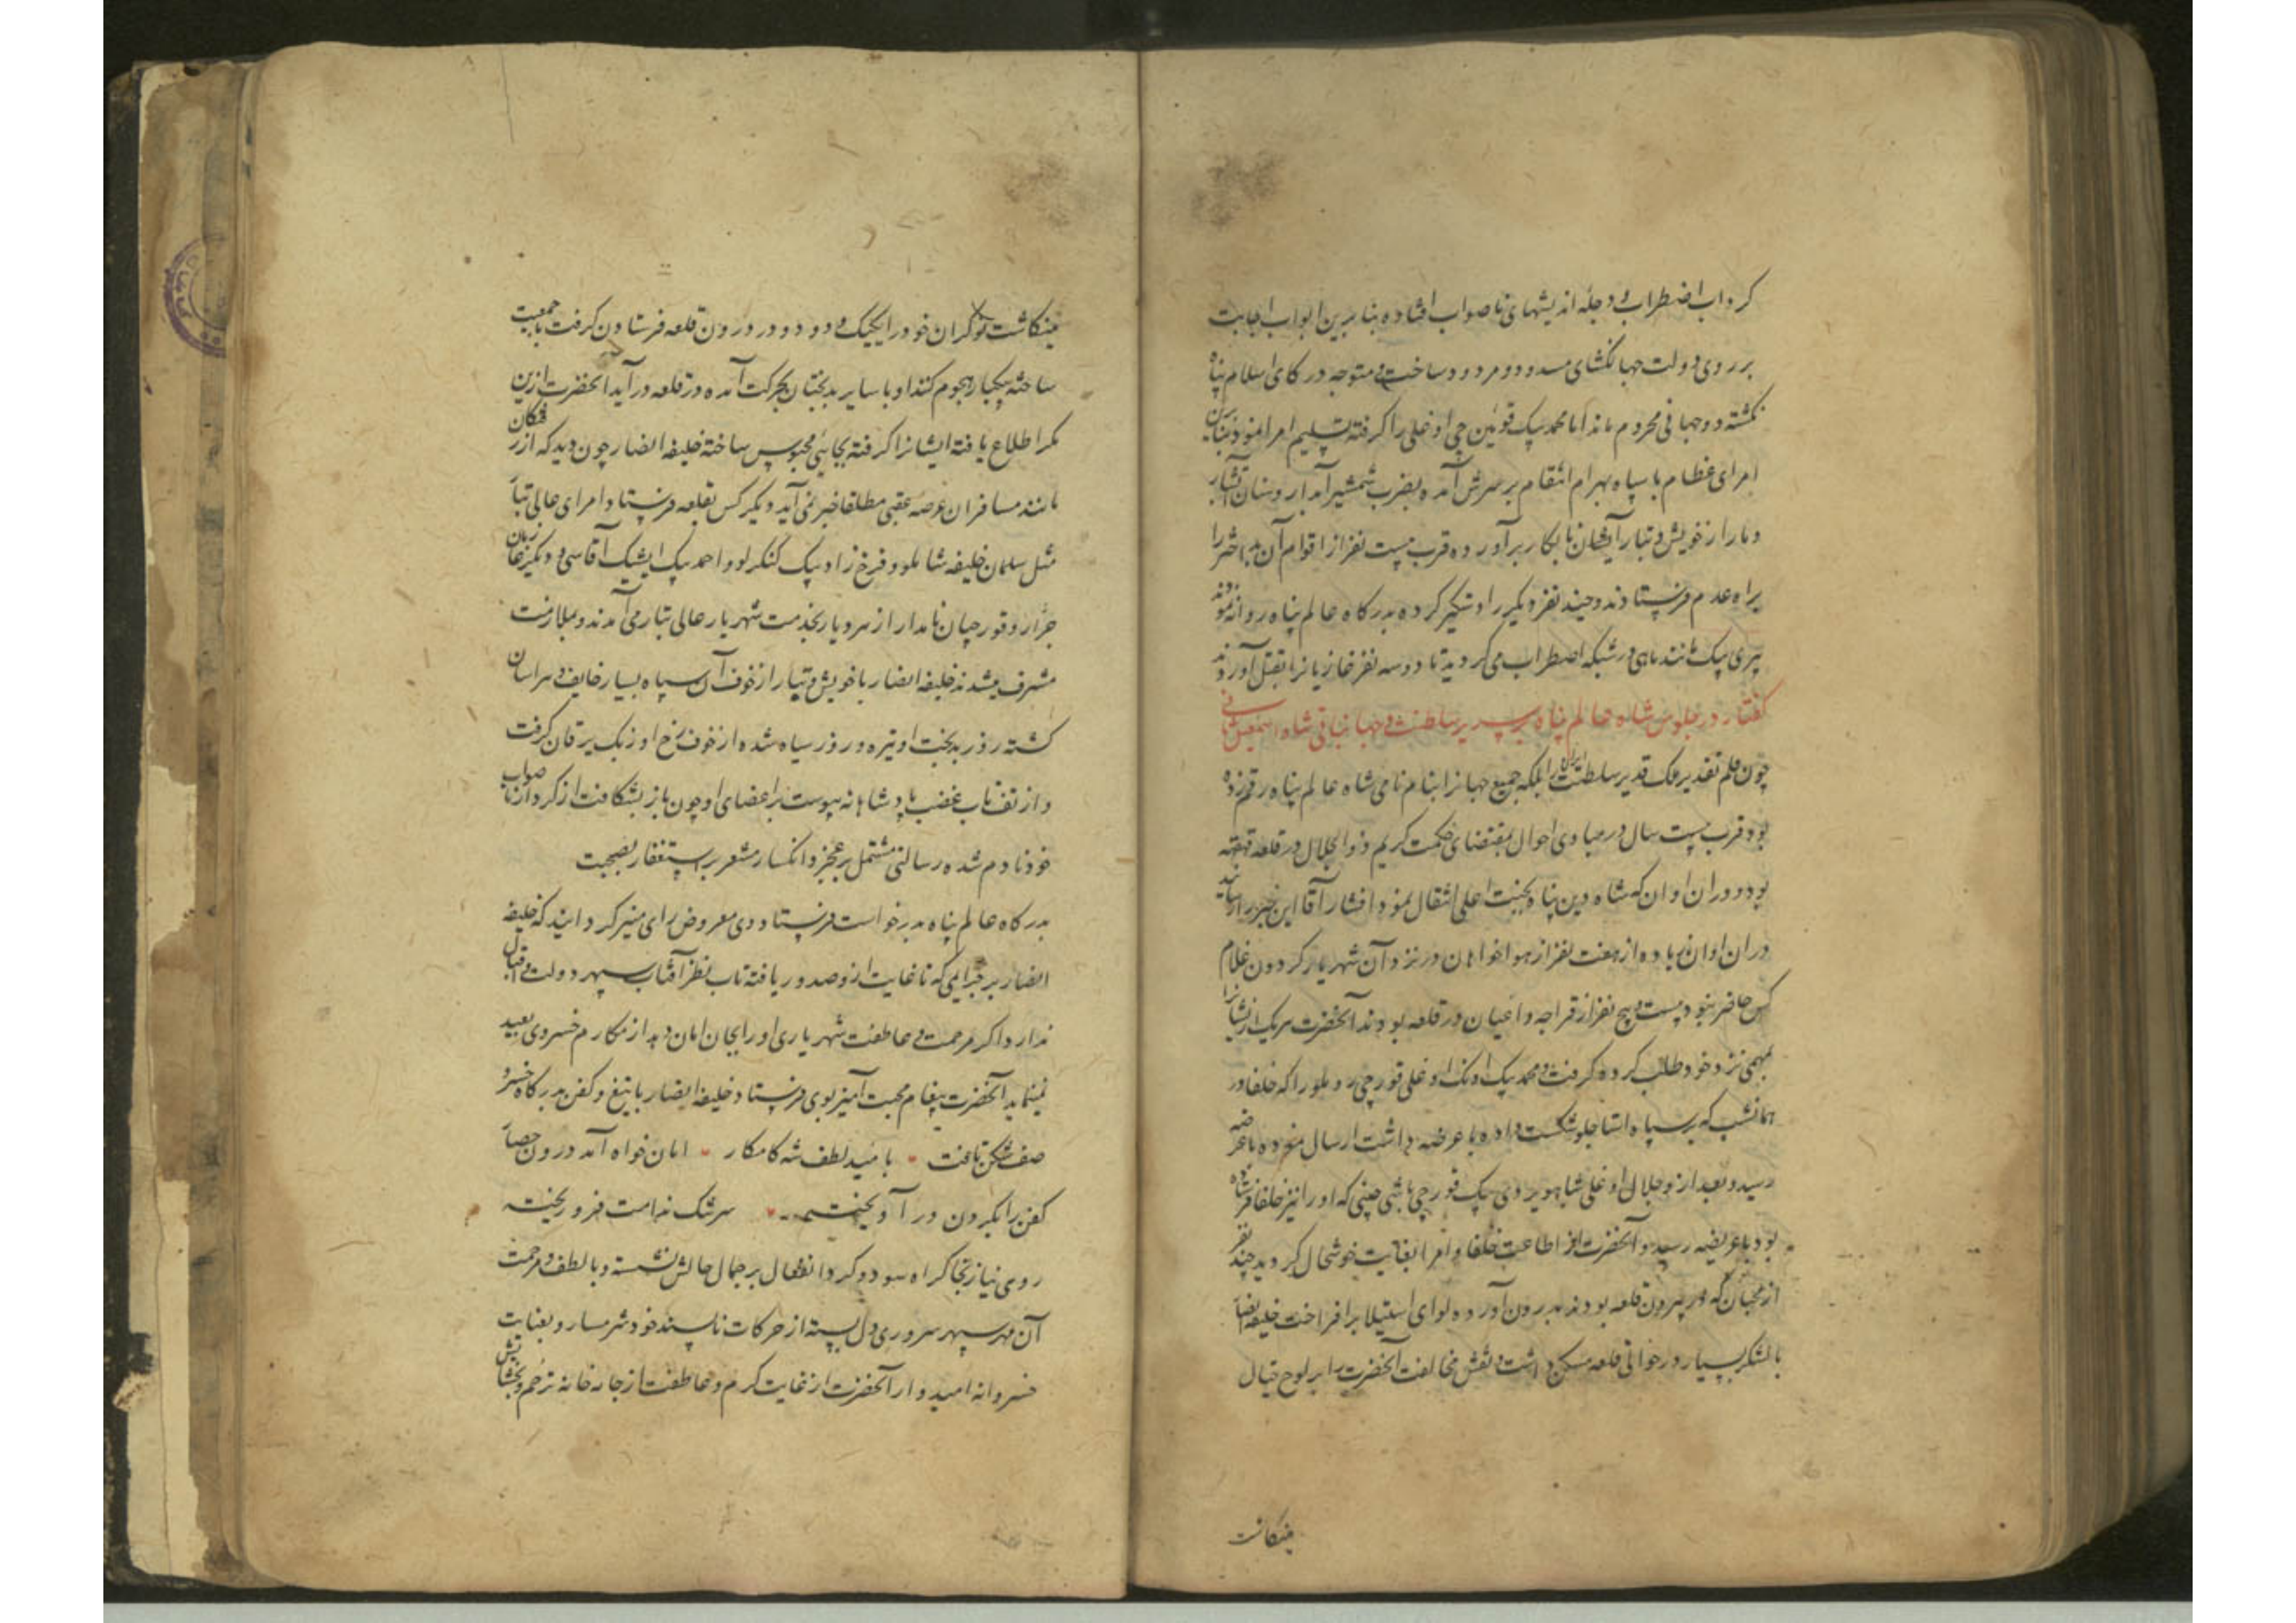 کرداب اضطراب و دجله اندیشهای ناصواب افتاده بنابرین ابواب اجابت
بر روی دولت جهانکشای مسدود و مردود ساخت و متوجه درکاه اسلام پناه
نکشته دو جهانی محروم ماند اما محمد بیک قوئین جی اوغلی را کرفته تسلیم امرا نمود بنابرین
امرای عظام با سپاه بهرام انتقام بر سرش آمده بضرب شمشیر آبدار و سنان آتشبار
دمار از خویش و تبار ایشان نابکار برآورده قرب بیست نفر از اقوام آن بد اختر را
براه عدم فرستادند و چند نفر دیگر را دستگیر کرده بدرکاه عالم پناه روانه نمودند
پیری بیک مانند ماهی در شبکه اضطراب می کردید تا دو سه نفر غازیانرا بقتل آوردند
کفتار در جلوس شاه عالم پناه بر سریر سلطنت و جهانبانی شاه اسمعیل ثانی
چون قلم تقدیر ملک قدیر سلطنت ایران را بلکه جمیع جهانرا بنام نامی شاه عالم پناه رقم زده
بود قرب بیست سال در مبادی احوال بمقتضای حکمت کریم ذوالجلال در قلعه قهقهه
بود در آن اوان که شاه دین پناه بجنت اعلی انتقال نمود افشار آقا این خبر را رسانید
در آن اوان زیاده از هفت نفر از هواخواهان در نزد آن شهریار کردون غلام
کس حاضر نبود بیست و پنج نفر از قراجه داغیان در قلعه بودند آنحضرت هر یک از ایشانرا
بمهمی نزد خود طلب کرده کرفت و محمد بیک اونک اوغلی قورچی روملو را که خلفا در
همانشب که بر سپاه استاجلو شکست داده با عرضه داشت ارسال نموده با عرضه
رسید و بعد ازو جلال اوغلی شاهویردی بیک قورچی باشی چپنی که او را نیز خلفا فرستاده
بود با عریضه رسید و آنحضرت از اطاعت خلفا و امرا بغایت خوشحال کردید چند نفر
از محبان که در بیرون قلعه بودند بدرون آورده لوای استیلا برافراخت خلیفه انصار
با لشکر بسیار در حوالی قلعه مسکن داشت و نقش مخالفت آنحضرت را بر لوح خیال
مینکاشت
مینکاشت نوکران خود را یکیک و دو دو در درون قلعه فرستادن کرفت تا جمعیت
ساخته بیکبار هجوم کنند او با سایر بدبختان بحرکت آمده در قلعه درآید آنحضرت ازین
مکر اطلاع یافته ایشانرا کرفته بجائی محبوس ساخته خلیفه انصار چون دید که از رفتکان
مانند مسافران عرصه عقبی مطلقا خبر نمی آید دیگر کس بقلعه نفرستاد و امرای عالی تبار
مثل سلمان خلیفه شاملو و فرخ زاد بیک کنکرلو و احمد بیک ایشیک آقاسی و دیگر غازیان
جرار و قورچیان نامدار از هر دیار بخدمت شهریار عالی تبار می آمدند و بملازمت
مشرف میشدند خلیفه انصار با خویش و تبار از خوف آن سپاه بسیار خایف و هراسان
کشته روز بدبخت او تیره و روز سیاه شده از خوف رخ او رنک یرقان کرفت
و از تف تاب غضب پادشاهانه پوست بر اعضای او چون باز بشکافت از کردار ناصواب
خود نادم شده رسالتی مشتمل بر عجز و انکسار مشعر بر استغفار بصحبت
بدرکاه عالم پناه بدرخواست فرستاد وی معروض رای منیر کردانید که خلیفه
انصار بر جرایمی که تا غایت ازو صدور یافته تاب نظر آفتاب سپهر دولت و اقبال
ندارد اکر مرحمت و عاطفت شهریاری او را بجان امان دهد از مکارم خسروی بعید
نمینماید آنحضرت پیغام محبت آمیز بوی فرستاد خلیفه انصار با تیغ و کفن بدرکاه خسرو
صف شکن تافت بامید لطف شه کامکار امان خواه آمد درون حصار
کفن را بکردن درآویخته سرشک ندامت فرو ریخته
روی نیاز بخاک راه سود و کرد انفعال بر جمال حالش نشسته و با لطف و مرحمت
آن مهر سپهر سروری دل بسته از حرکات ناپسند خود شرمسار و بعنایت
خسروانه امیدوار آنحضرت از غایت کرم و عاطفت از جاده خانه ترحم و بخشایش